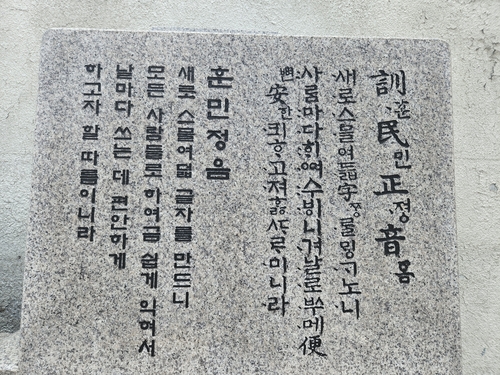 訓·훈民민正·졍音ᅙᅳᆷ
·새·로·스·믈여·듧字·ᄍᆞᆼ·ᄅᆞᆯᄆᆡᇰ·ᄀᆞ노·니
:사ᄅᆞᆷ:마·다:ᄒᆡ·ᅇᅧ:수·ᄫᅵ니·겨·날·로·ᄡᅮ·메便
뼌安ᅙᅡᆫ·킈ᄒᆞ·고·져ᄒᆞᇙᄯᆞᄅᆞ·미니·라
훈민정음
새로 스물여덟 글자를 만드니
모든 사람들로 하여금 쉽게 익혀서
날마다 쓰는 데 편안하게
하고자 할 따름이니라